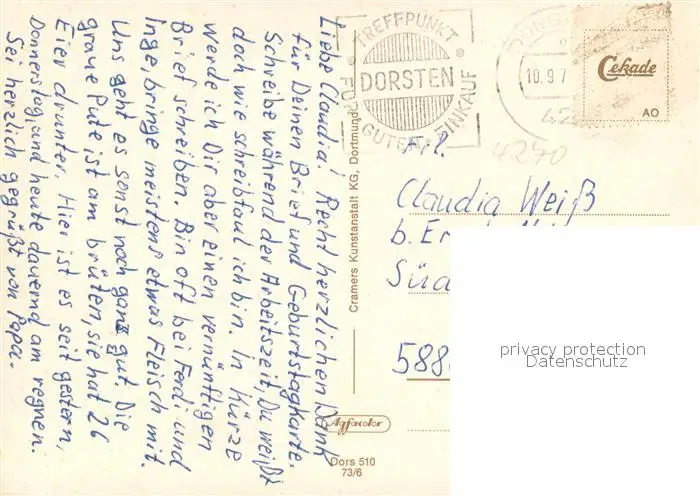 Liebe Claudia! Recht herzlichen Dank
für Deinen Brief und Geburtstagkarte.
Schreibe während der Arbeitszeit, Du weißt
doch wie schreibfaul ich bin. In Kürze
werde ich Dir aber einen vernünftigen
Brief schreiben. Bin oft bei Ferd. und
Inge, bringe meistens etwas Fleisch mit.
Uns geht es sonst noch ganz gut. Die
graue Pute ist am brüten, sie hat 26
Eier drunter. Hier ist es seit gestern,
Donnerstag, und heute dauernd am regnen.
Sei herzlich gegrüßt von Papa.
Cramers Kunstanstalt KG, Dortmund
TREFFPUNKT
DORSTEN
FÜR GUTEN EINKAUF
DORS
10.9.7
42
4270
Cekade
AO
Frl.
Claudia Weiß
b.
Süd
588
Agfacolor
Dors 510
73/6
privacy protection
Datenschutz